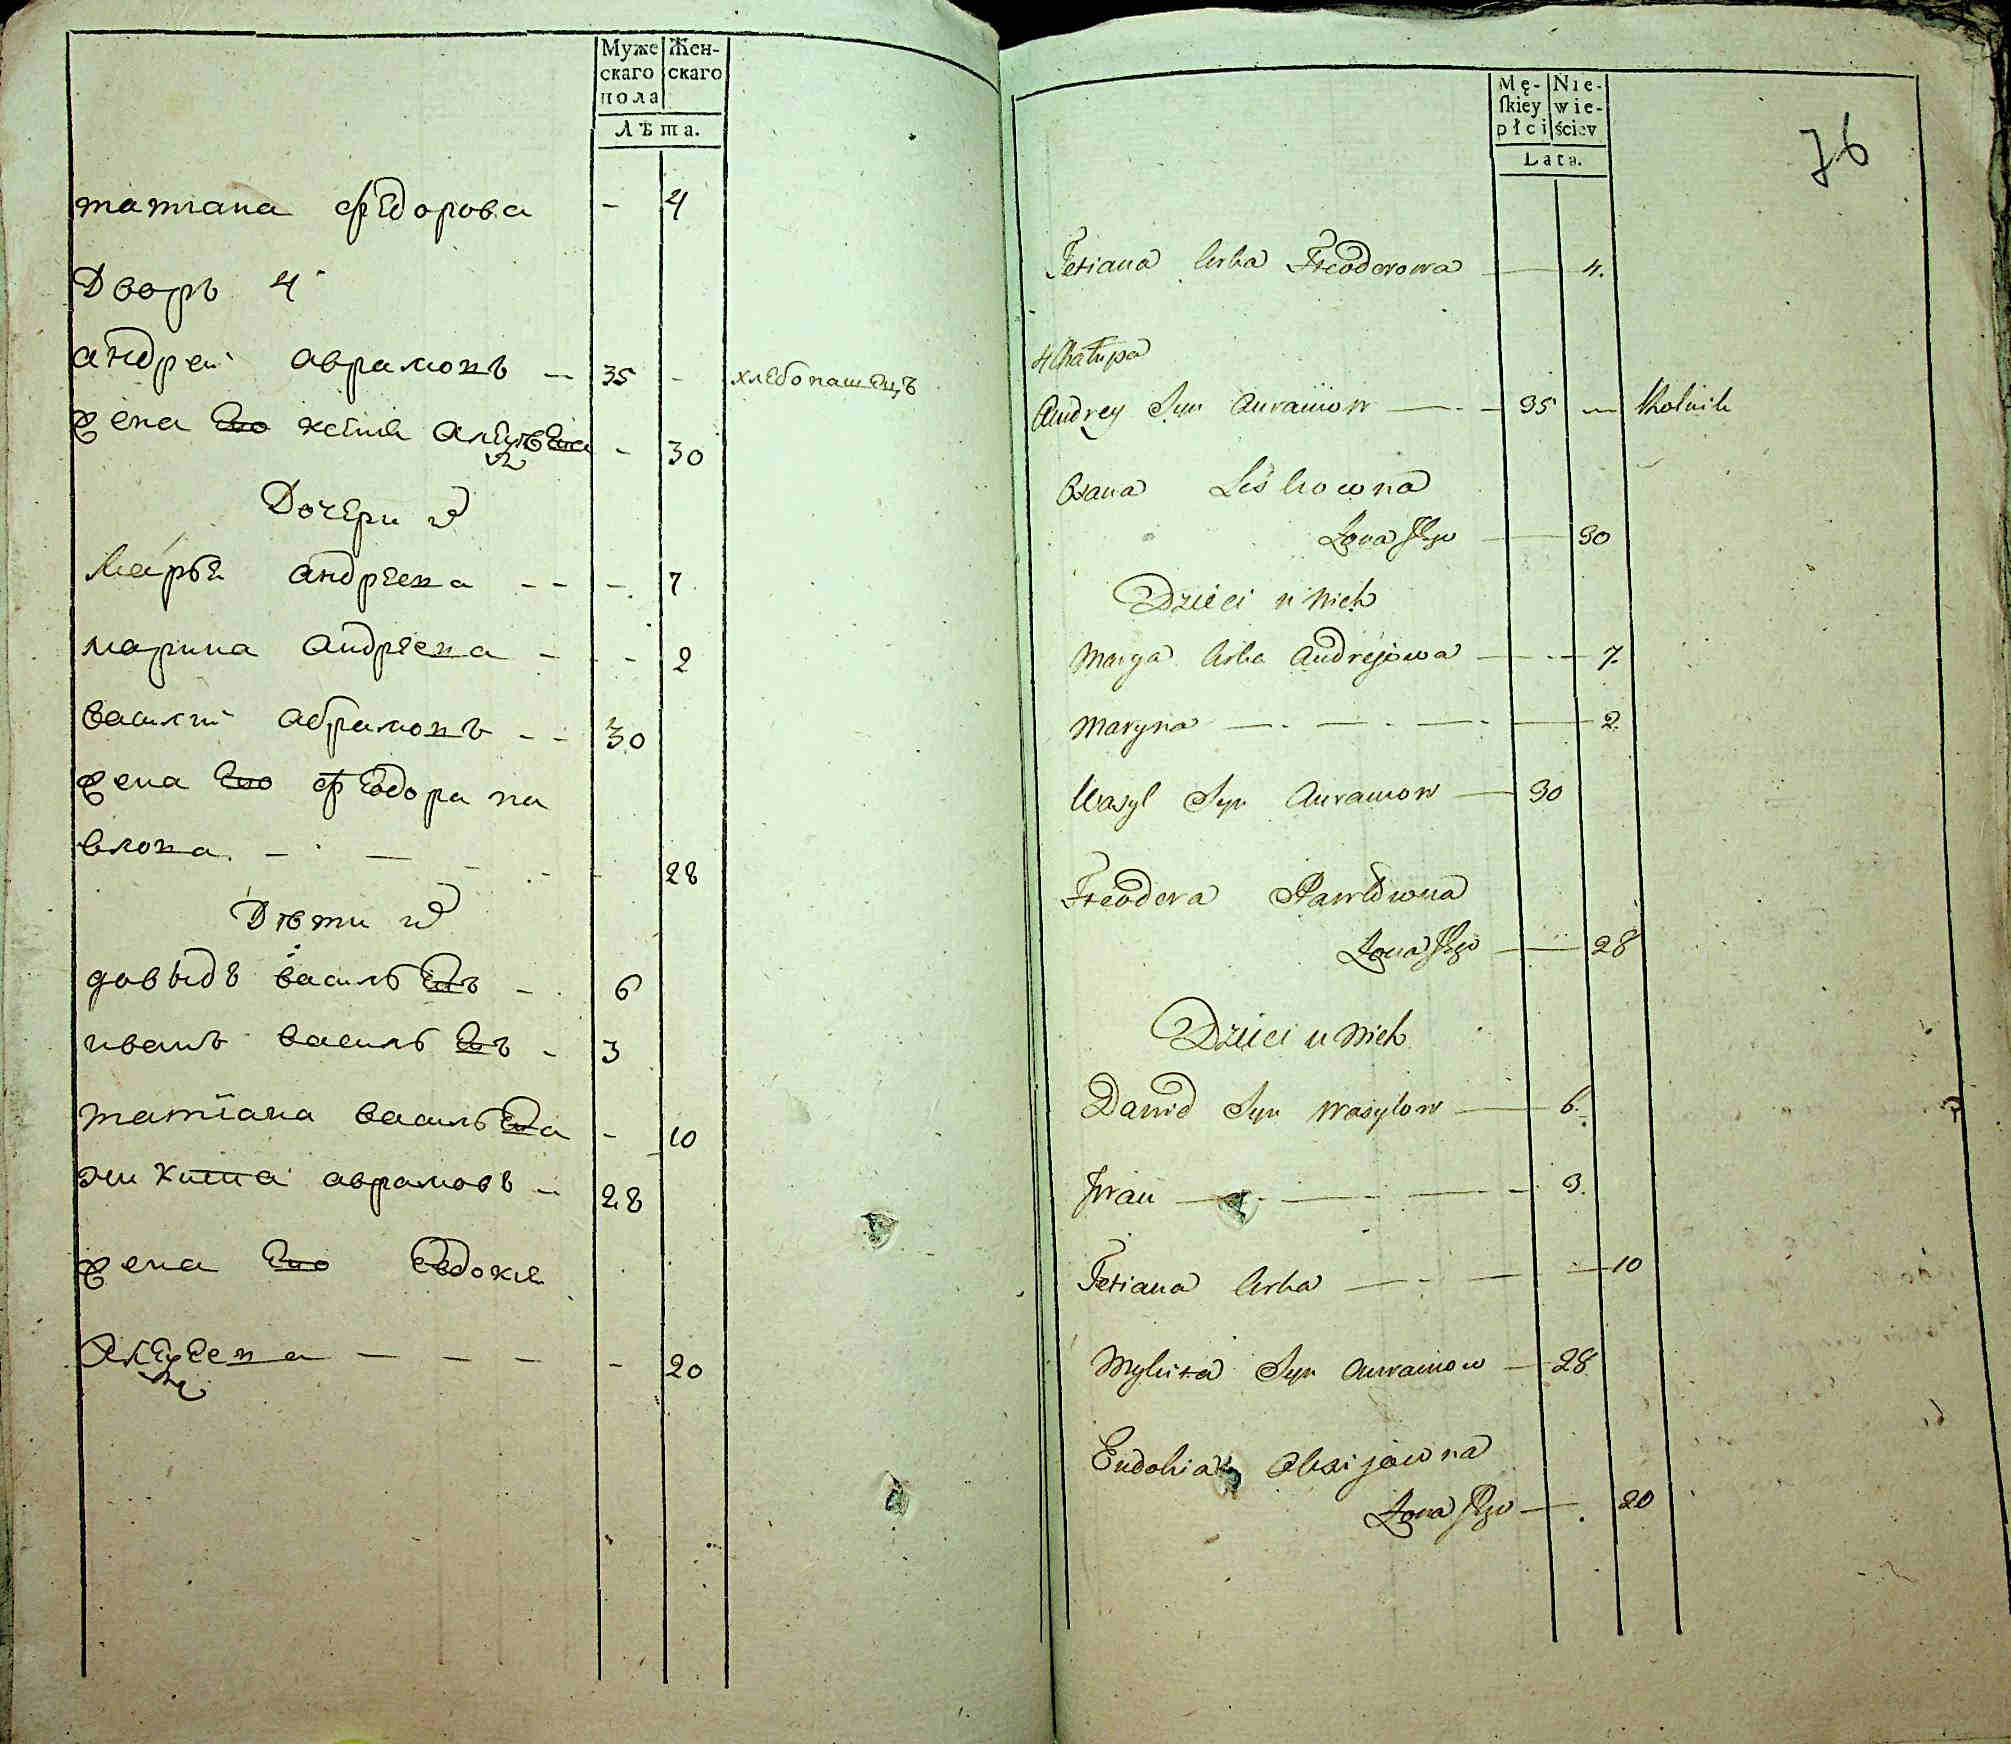 Муже
скаго
пола
Жен-
скаго
Лѣта.
татiана федорова - 4
Дворъ 4
андрей аврамовъ - 35 - хлебопашецъ
жена его - 30
Дочери их
Марья андреева - - - 7
марина андреева - - - 2
василiй абрамовъ - - 30
жена его федора па
влова - 28
Дѣти их
давыдъ васильевъ - 6
иванъ васильевъ - 3
татiана васильева - 10
никита аврамовъ - 28
жена его евдокия
алексеева - - - - 20
Mę-
skiey
płci
Nie-
wie-
ściey
Lata.
76
Tetiana Crka Fteodorowa — 4.
4 Chałupa
Andrey Syn Auramow — 35 — Rolnik
Leskowna
Zona Jego — 30
Dzieci u nich
Marya Crka Andrejowa — 7.
Maryna — 2
Wasyl Syn Auramow — 30
Fteodora Pawłowna
Zona Jego — 28
Dzieci u Nich
Dawid Syn Wasylow — 6.
Jwan — 3.
Tetiana Crka — 10
Mykita Syn Auramow — 28
Eudokia Olexijowna
Zona Jego — 20